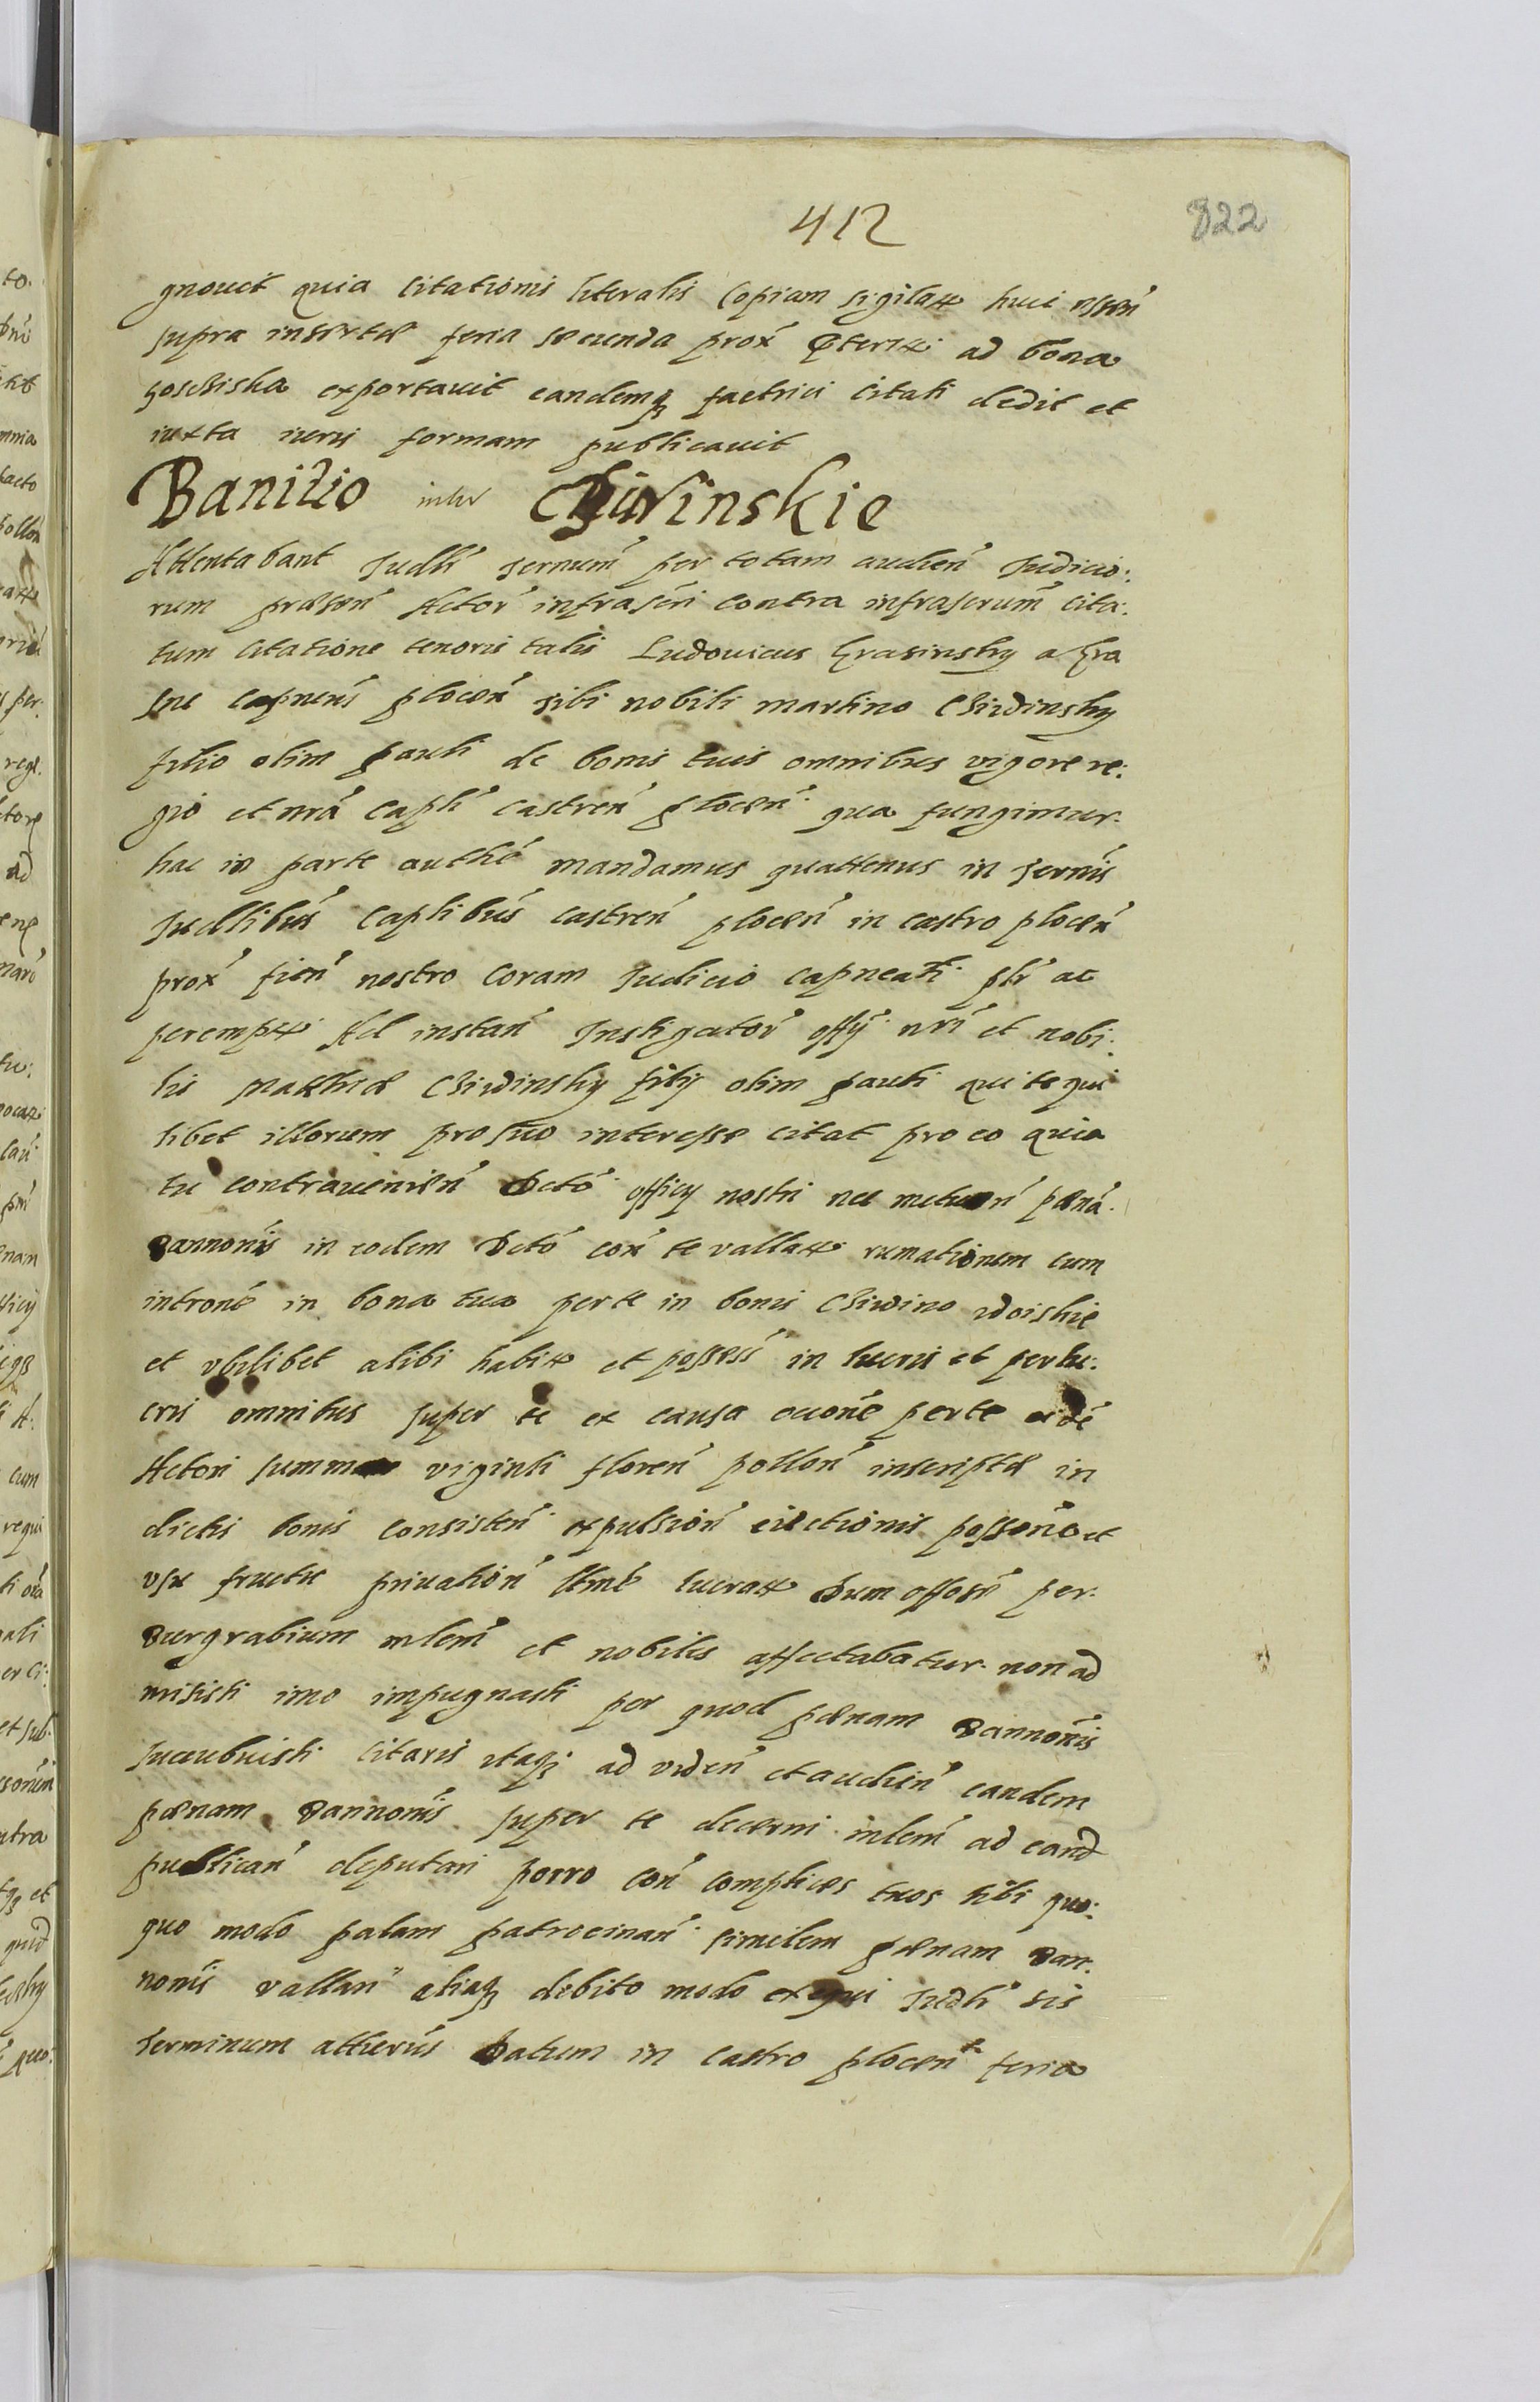 412
822
gnouit quia Citationis literalis Copiam sigilatt huic
supra insertæ feria secunda prox ad bona
exportauit eandemq factrici Citati dedit et
iuxta iuris formam publicauit
Banitio inter Chiwinskie
Attentabant Judli termin per totam audien Judicio:
rum præsen Actor infrascri Contra infrascrum Cita:
tum Citatione tenoris talis Ludouicus Krasinsky a Kra
sne capnens plocen tibi nobili martino Chiwdinsky
filio olim pauli de bonis tuis omnibus vigore re:
gio et nra Capli Castren plocen qua fungimur
hac in parte autho mandamus quattenus in termis
Judlibus Caplibus castren plocen in castro plocen
prox fien nostro Coram Judicio capneali plr ac
peremptt Ad instan Instigator offy nri et nobi:
lis Matthiæ Chiwdinsky filij olim pauli qui te qui
libet illorum pro suo interesse citat pro eo quia
tu contrauenien Dcto officij nostri nec metuen pæna
Bannonis in eodem Dcto con te vallatt rumationem cum
introne in bona tua per te in bonis Chiwdino
et vbilibet alibi habitt et possess in lucris et perlu:
cris omnibus super te ex causa occone per te eide
Actori summæ viginti floren pollon inscriptæ in
dictis bonis Consisten expulsion eiectionis possone et
vsu fructu priuation ltme lucratt Dum offose per
Burgrabium mlem et nobiles affectabatur non ad
misisti imo impugnasti per quod pænam Bannonis
succubuisti Citaris itaq ad viden et audien eandem
pænam Bannonis super te decerni mlem ad eand
publican deputari porro con complices tuos tibi quo:
quo modo palam patrocinan similem pænam Ban:
nonis vallan aliaq debito modo exequi Judli sis
terminum attturus Datum in castro plocen feria